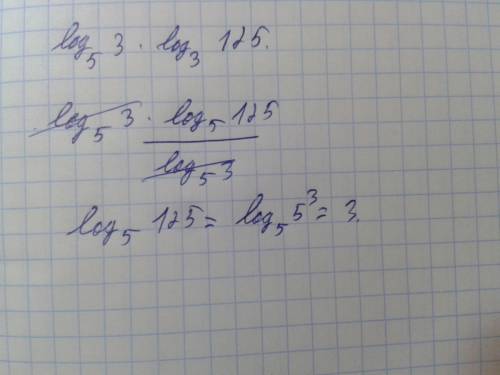 log₅ 3 · log₃ 125.
log₅ 3 · log₅ 125
log₅ 3
log₅ 125 = log₅ 5³ = 3.